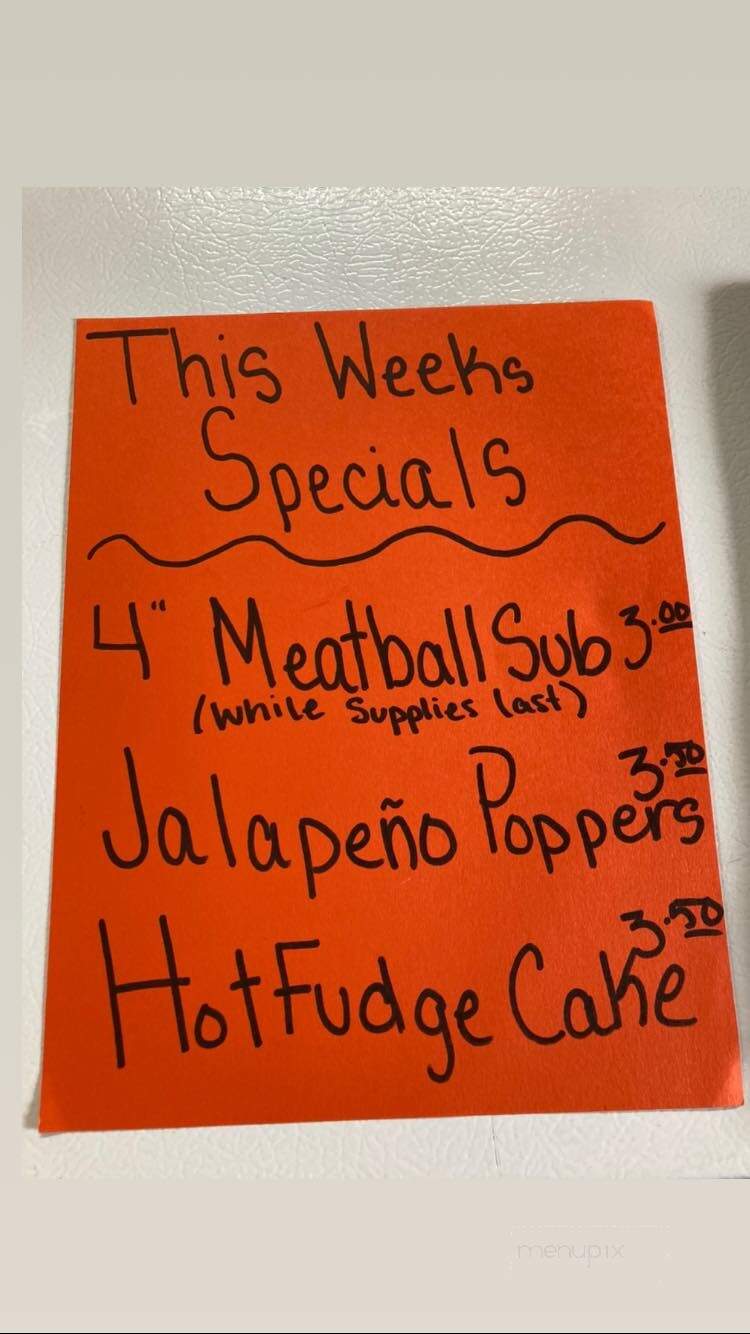 This Weeks
Specials
4" Meatball Sub 3.00
(While Supplies last)
Jalapeño Poppers 3.50
Hot Fudge Cake 3.50
menupix